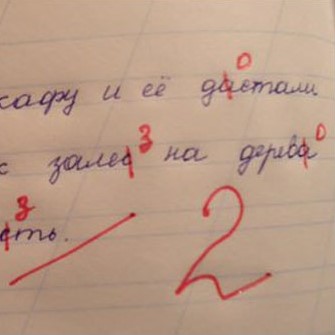 кафу и её дастали
с залес на дерева
сть.
2